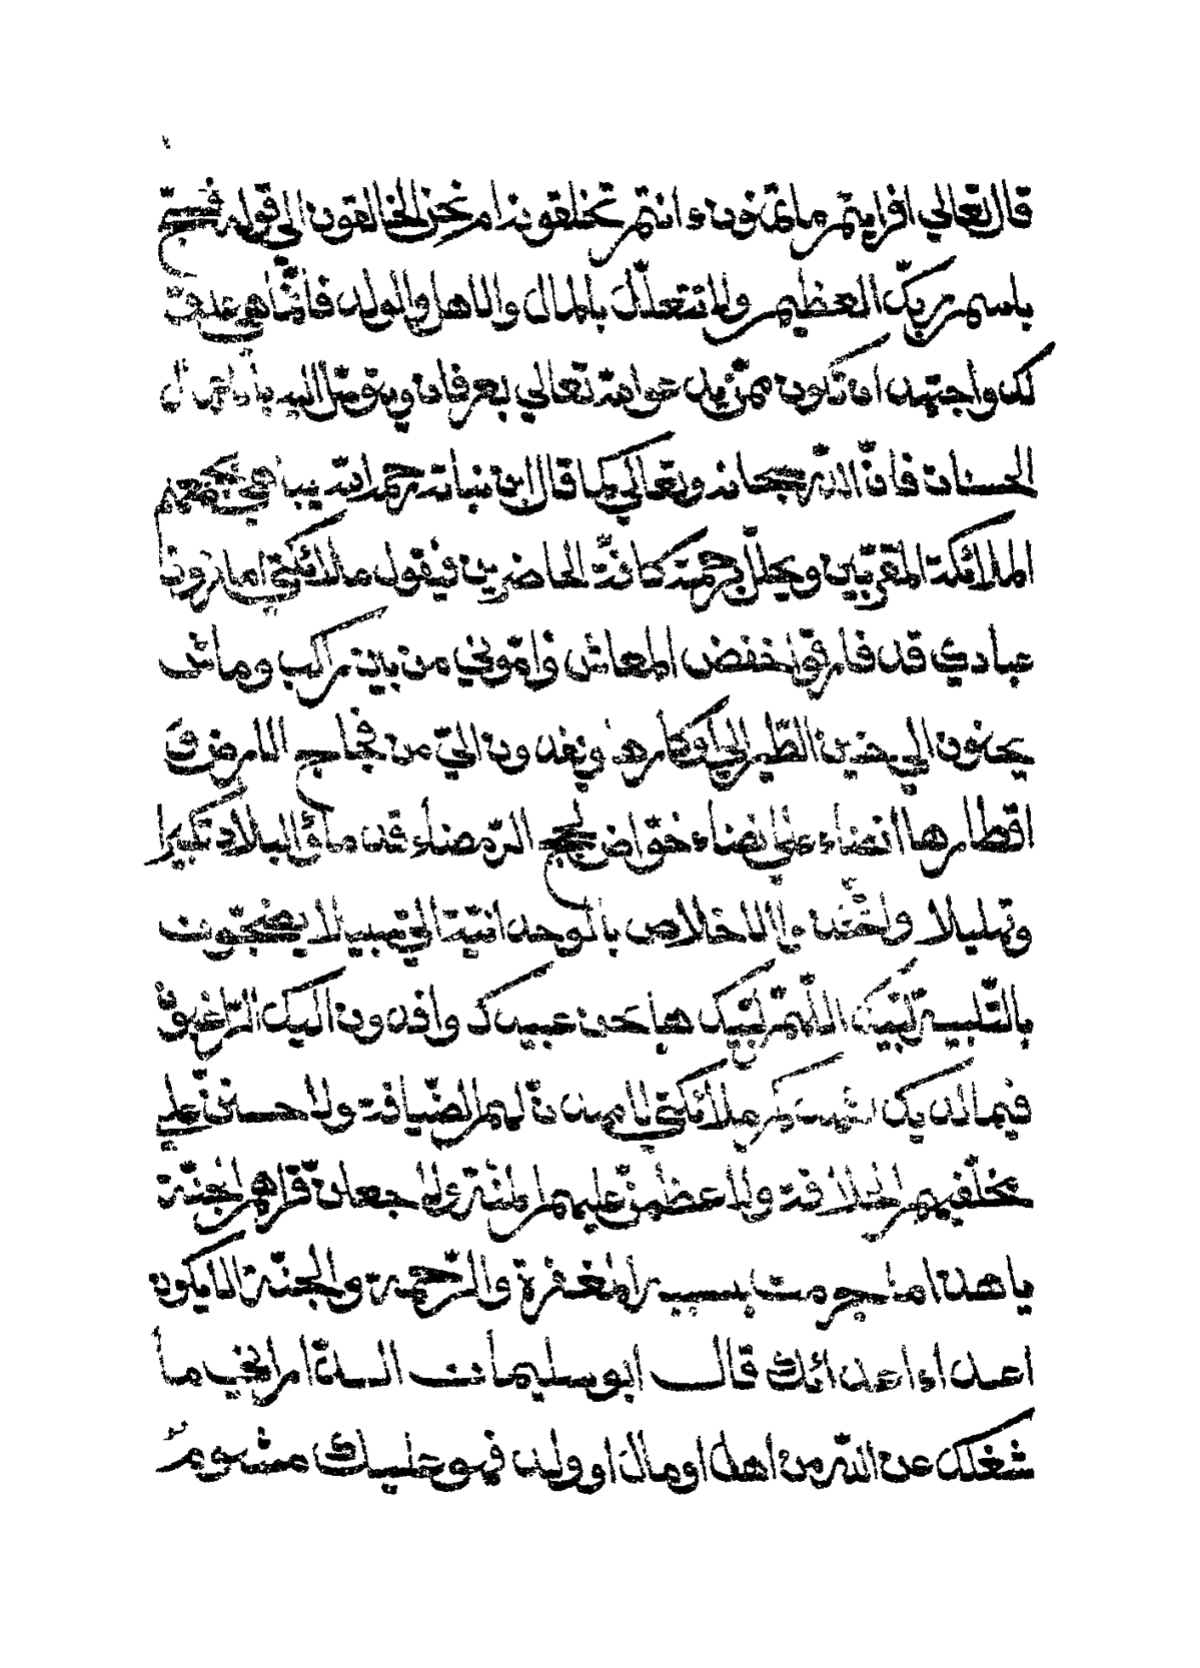 قال تعالى افرايتم ما تمنون ءانتم تخلقونه ام نحن الخالقون الى قوله فسبح
باسم ربك العظيم ولا تتعلل بالمال والاهل والولد فانما هي
لك واجتهد ان تكون ممن يدعواه تعالى بعرفان ويتوسل اليه
الحسنات فان الله سبحانه وتعالى كما قال ابن نباته رحمه الله يباهي بجمعهم
الملائكة المقربين ويجلل برحمته كافة الحاضرين فيقول ملائكتي اما ترون
عبادي قد فارقوا خفض المعاش واتوني من بين راكب وماش
يحنون الي حنين الطير الى اوكارها ويفدون الي من فجاج الارض و
اقطارها انضاء على انضاء خواض لجج الرمضاء قد ملؤ البلاد تكبيرا
وتهليلا واتخذوا الاخلاص بالوحدانية الي سبيلا يضجون
بالتلبية لبيك اللهم لبيك ها نحن عبيدك وافدون اليك الراغبون
فيما لديك اشهدكم ملائكتي لامهدن لهم الضيافة ولاحسنن على
مخلفيهم الخلافة ولاعظمن عليهم المنة ولاجعلن قراهم الجنة
يا هذا مت بسبب المغفرة والرحمة والجنة الا يكون
اعدا اعدائك قال ابو سليمان الداراني ما
شغلك عن الله من اهل او مال او ولد فهو عليك مشوم